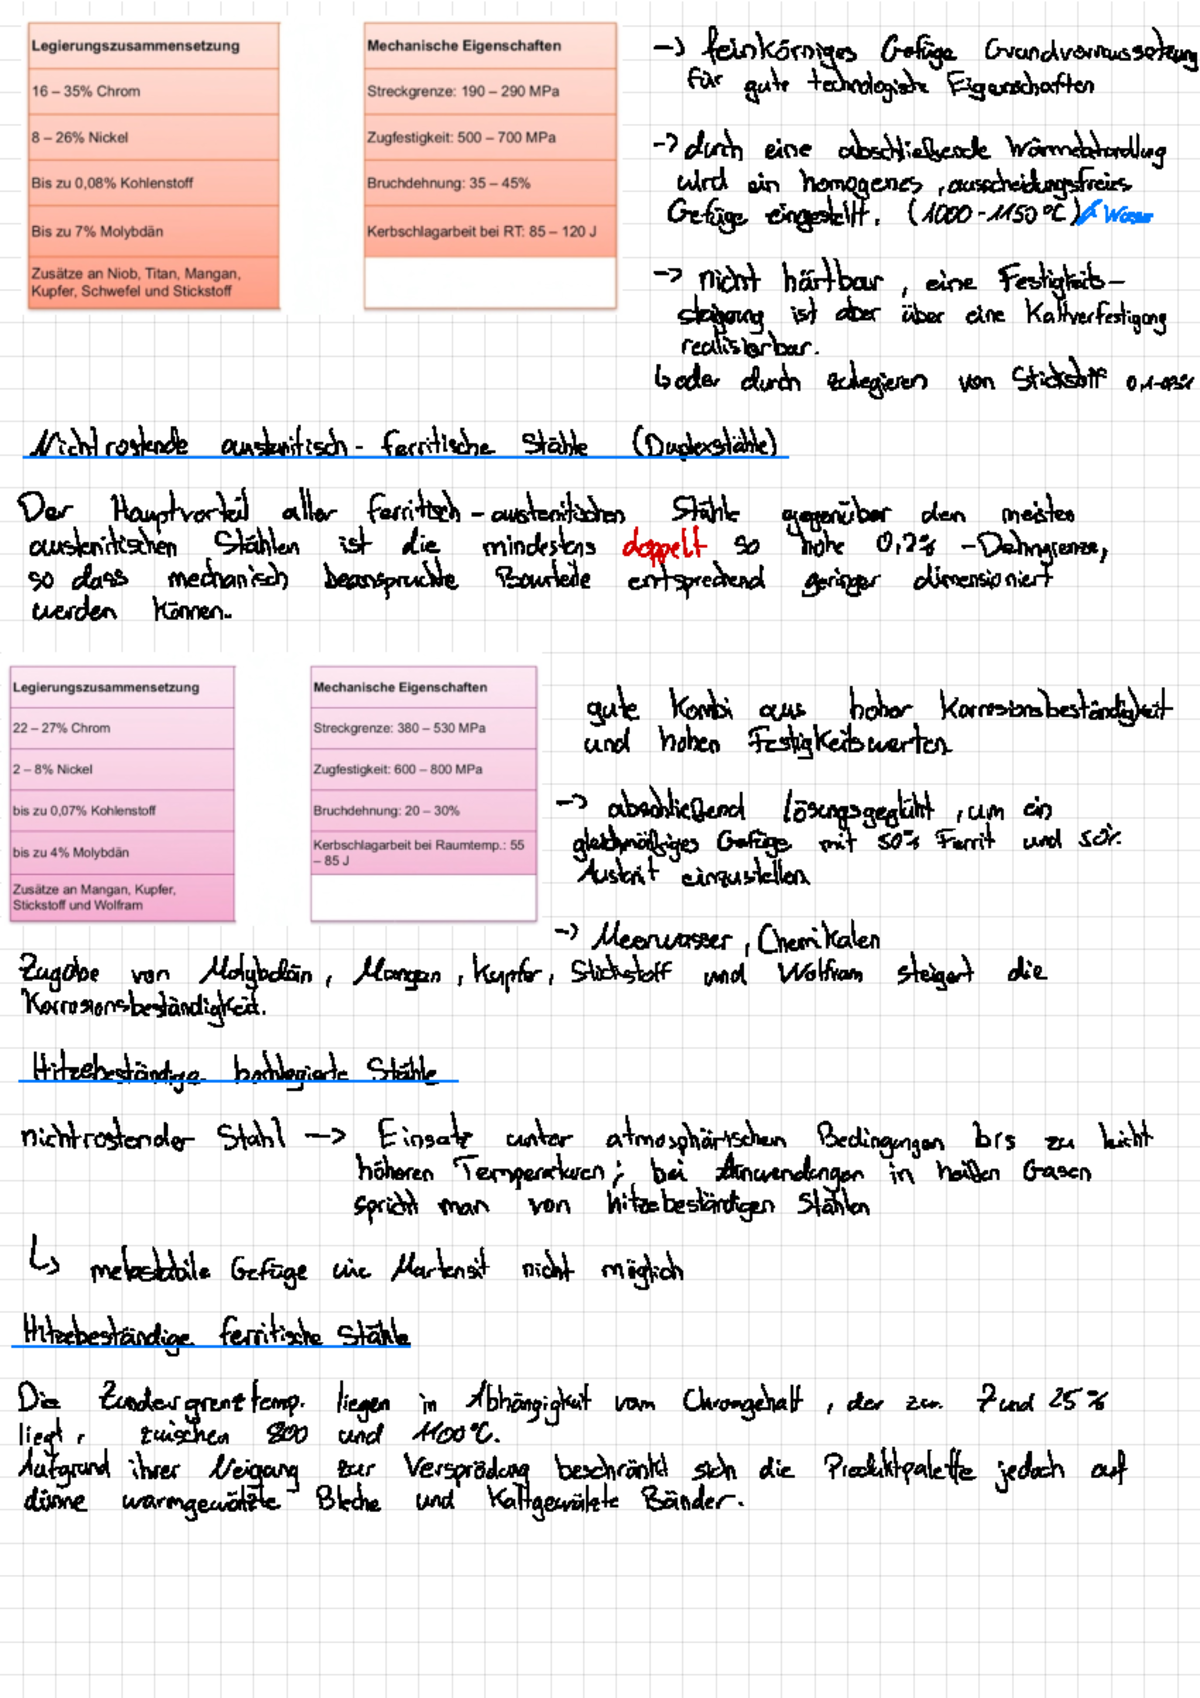 Legierungszusammensetzung
16 – 35% Chrom
8 – 26% Nickel
Bis zu 0,08% Kohlenstoff
Bis zu 7% Molybdän
Zusätze an Niob, Titan, Mangan,
Kupfer, Schwefel und Stickstoff
Mechanische Eigenschaften
Streckgrenze: 190 – 290 MPa
Zugfestigkeit: 500 – 700 MPa
Bruchdehnung: 35 – 45%
Kerbschlagarbeit bei RT: 85 – 120 J
-> feinkörniges Gefüge Grundvorraussetzung
für gute technologische Eigenschaften
-> durch eine abschließende Wärmebehandlung
wird ein homogenes, ausscheidungsfreies
Gefüge eingestellt. (1000-1150°C) Wasser
-> nicht härtbar, eine Festigkeits-
steigerung ist aber über eine Kaltverfestigung
realisierbar.
↳ oder durch zulegieren von Stickstoff
Nichtrostende austenitisch-ferritische Stähle (Duplexstähle)
Der Hauptvorteil aller ferritisch-austenitischen Stähle gegenüber den meisten
austenitischen Stählen ist die mindestens doppelt so hohe 0,2%-Dehngrenze,
so dass mechanisch beanspruchte Bauteile entsprechend geringer dimensioniert
werden können.
Legierungszusammensetzung
22 – 27% Chrom
2 – 8% Nickel
bis zu 0,07% Kohlenstoff
bis zu 4% Molybdän
Zusätze an Mangan, Kupfer,
Stickstoff und Wolfram
Mechanische Eigenschaften
Streckgrenze: 380 – 530 MPa
Zugfestigkeit: 600 – 800 MPa
Bruchdehnung: 20 – 30%
Kerbschlagarbeit bei Raumtemp.: 55
– 85 J
gute Kombi aus hoher Korrosionsbeständigkeit
und hohen Festigkeitswerten
-> abschließend lösungsgeglüht, um ein
gleichmäßiges Gefüge mit 50% Ferrit und 50%
Austenit einzustellen
-> Meerwasser, Chemikalen
Zugabe von Molybdän, Mangan, Kupfer, Stickstoff und Wolfram steigert die
Korrosionsbeständigkeit.
Hitzebeständige hochlegierte Stähle
nichtrostender Stahl -> Einsatz unter atmosphärischen Bedingungen bis zu leicht
höheren Temperaturen; bei Anwendungen in heißen Gasen
spricht man von hitzebeständigen Stählen
↳ metastabile Gefüge wie Martensit nicht möglich
Hitzebeständige ferritische Stähle
Die Zundergrenztemp. liegen in Abhängigkeit vom Chromgehalt, der zw. 7 und 25%
liegt, zwischen 800 und 1100°C.
Aufgrund ihrer Neigung zur Versprödung beschränkt sich die Produktpalette jedoch auf
dünne warmgewälzte Bleche und Kaltgewälzte Bänder.